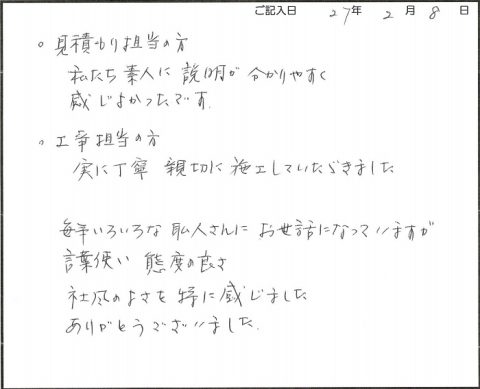 ご記入日 27年 2月 8日
。見積もり担当の方
私たち素人に説明が分かりやすく
感じよかったです.
。工事担当の方
実に丁寧 親切に施工していただきました
毎年いろいろな職人さんに お世話になっていますが
言葉使い 態度の良さ
社風のよさを特に感じました
ありがとうございました.